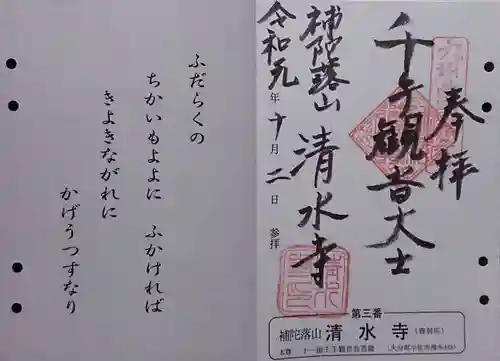 ふだらくの
ちかいもよよに　ふかければ
きよきながれに
かげうつすなり
奉拝
千手観音大士
補陀落山　清水寺
令和元年十月二日参拝
第三番
補陀落山　清水寺
本尊　十一面千手観世音菩薩